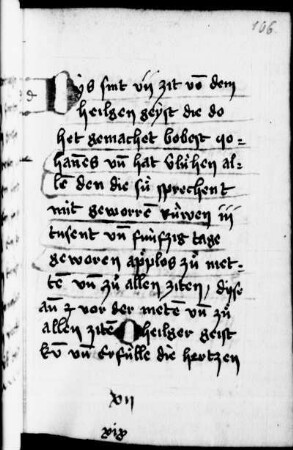 106.
Dys sint vij zit vō dem
heilgen geyst die do
het gemachet bobest jo=
hañes vñ hat vlühen al=
le den die sü sprechent
mit geworrē rüwen iij
tusent vñ fünfzig tage
geworen applos zů met=
tē vñ zů allen ziten, dyse
vor der metē vñ zů
allen zitē O heilger geist
kū vñ erfülle die hertzen
xij
xix